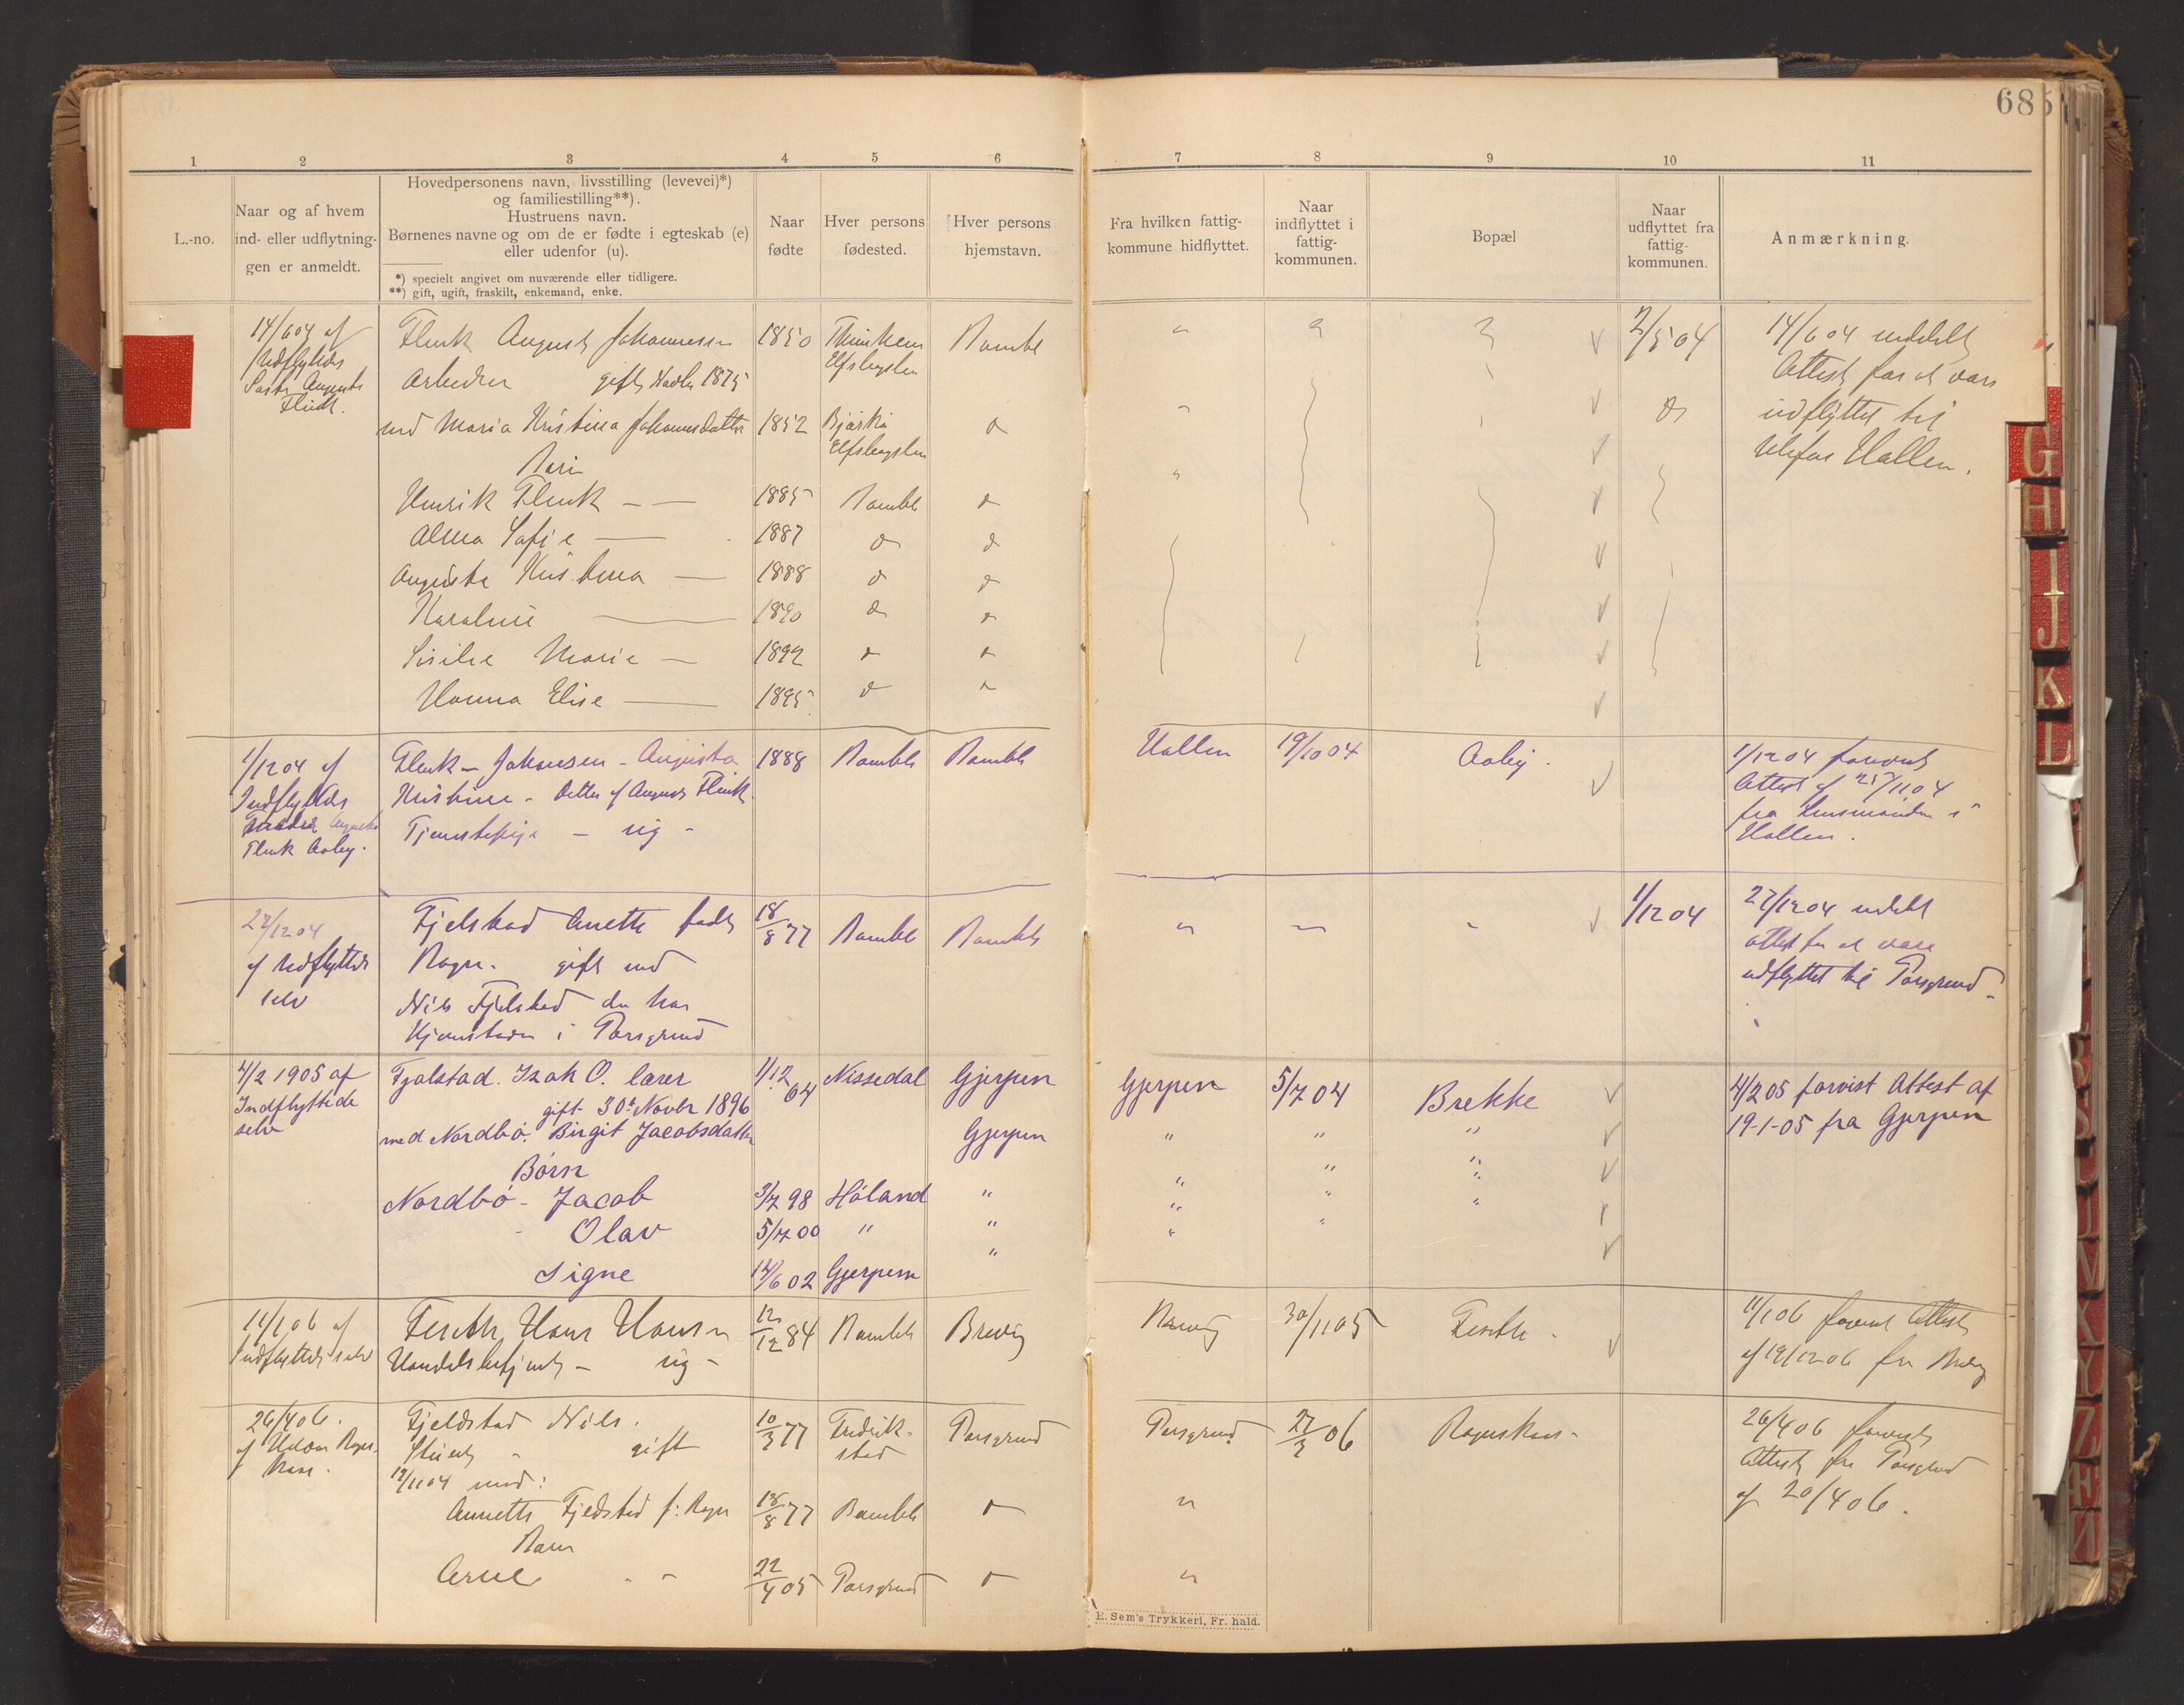 685
1 2 3 4 5 6 7 8 9 10 11
L.-no.
Naar og af hvem
ind- eller udflytnin-
gen er anmeldt.
Hovedpersonens navn, livsstilling (levevei)*)
og familiestilling**).
Hustruens navn.
Børnenes navne og om de er fødte i egteskab (e)
eller udenfor (u).
*) specielt angivet om nuværende eller tidligere.
**) gift, ugift, fraskilt, enkemand, enke.
Naar
fødte
Hver persons
fødested.
Hver persons
hjemstavn.
Fra hvilken fattig-
kommune hidflyttet.
Naar
indflyttet i
fattig-
kommunen.
Bopæl
Naar
udflyttet fra
fattig-
kommunen.
Anmærkning.
14/6 04 af
Udflyttedes
Flink August Johannessen 1850 Elfsborgslen Bamble 2/5 04
Arbeider gift 1875
14/6 04 meddelt
Attest for at være
udflyttet til
Hollen.
med Maria Kristina Johannesdatter 1852 Elfsborgslen do
Børn
Henrik Flink 1885 Bamble do
Alma Sofie 1887 do do
Augusta Kristina 1888 do do
Karoline 1890 do do
Marie 1892 do do
Hanna Elise 1895 do do
1/12 04 af
Indflyttedes
Flink Aaby.
Flink - Johansen - Augusta 1888 Bamble Bamble Hollen 19/10 04 Aaby.
Kristine - Datter af August Flink
Tjenestepige - ug -
1/12 04 forevist
Attest af 25/11 04
fra Lensmanden i
Hollen.
27/12 04
af Udflyttede
selv
Fjelstad Anette født 18/8 77 Bamble Bamble 1/12 04
gift med
Nils Fjelstad der har
Hjemstavn i Porsgrund
27/12 04 meddelt
attest for at være
udflyttet til Porsgrund
4/2 1905 af
Indflyttede
selv
Fjalstad. Izak O. lærer 1/12 64 Nissedal Gjerpen Gjerpen 5/7 04 Brekke
gift 30te Novbr 1896
med Nordbø. Birgit Jacobsdatter Gjerpen " " "
4/2 05 forvist Attest af
19-1-05 fra Gjerpen
Børn
Nordbø - Jacob 3/7 98 Høland " " " "
Olav 5/7 00 " " " " "
Signe 14/6 02 Gjerpen " "
11/1 06 af
Indflyttede selv
Hans Hansen 12/12 84 Bamble Brevig Brevig 30/11 05
Handelsbetjent - ug -
11/1 06 forevist Attest
af 19/12 06 fra Brevig
26/4 06.
Fjeldstad Nils. 10/3 77 Fredrik- Porsgrund Porsgrund 27/3 06
stad
gift
12/11 04 med:
Annette Fjeldstad f: 18/8 77 Bamble do
Børn
Arne 22/4 05 Porsgrund do
26/4 06 forevist
Attest fra Porsgrund
af 20/4 06.
E. Sem's Trykkeri, Fr.hald.
G
H
I
J
K
L